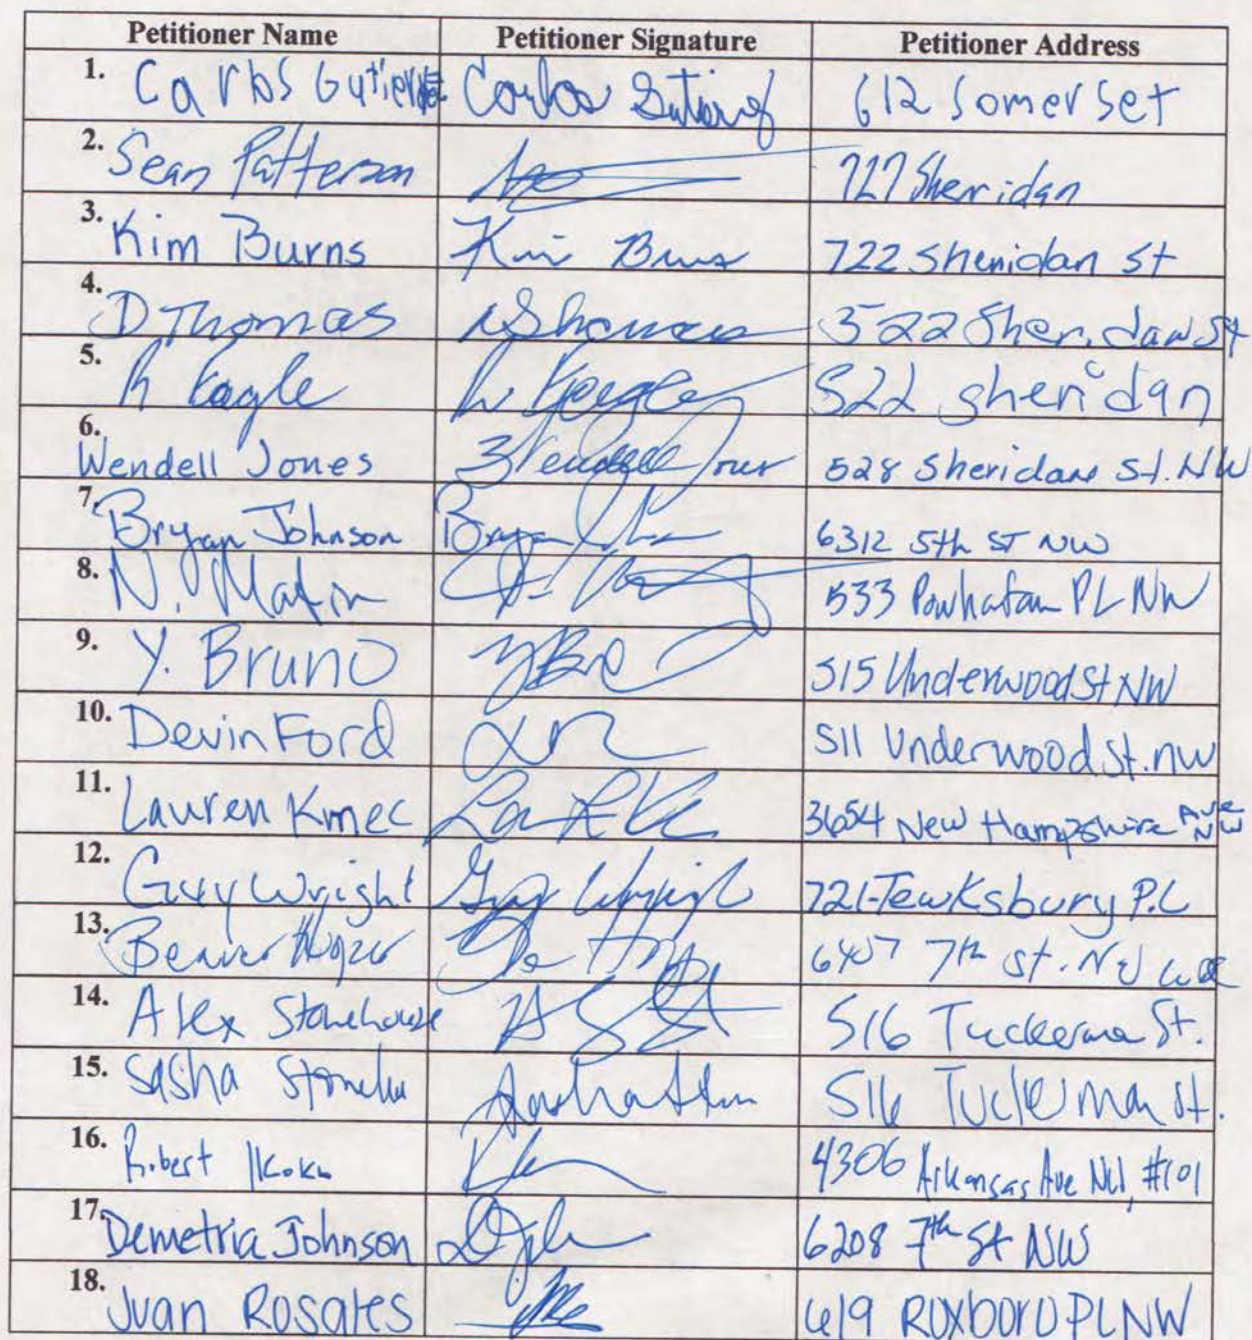 Petitioner Name Petitioner Signature Petitioner Address
1. Carlos Gutierrez Carlos Gutierrez 612 Somerset
2. Sean Patterson 727 Sheridan
3. Kim Burns Kim Burns 722 Sheridan St
4. D Thomas DThomas 522 Sheridan St
5. R Eagle R. Eagle 522 Sheridan
6. Wendell Jones Wendell Jones 528 Sheridan St. NW
7. Bryan Johnson Bryan 6312 5th ST NW
8. N. Matin 533 Powhatan PL NW
9. Y. Bruno 515 Underwood St NW
10. Devin Ford 511 Underwood St. NW
11. Lauren Kmec 3654 New Hampshire Ave NW
12. Guy Wright Guy Wright 721-Tewksbury P.L
13. Beaver 6407 7th St. NW
14. Alex Stonehouse 516 Tuckerman St.
15. Sasha 516 Tuckerman St.
16. Robert Ikoku 4306 Arkansas Ave NW, #101
17. Demetria Johnson 6208 7th St NW
18. Juan Rosales 619 Roxboro PL NW